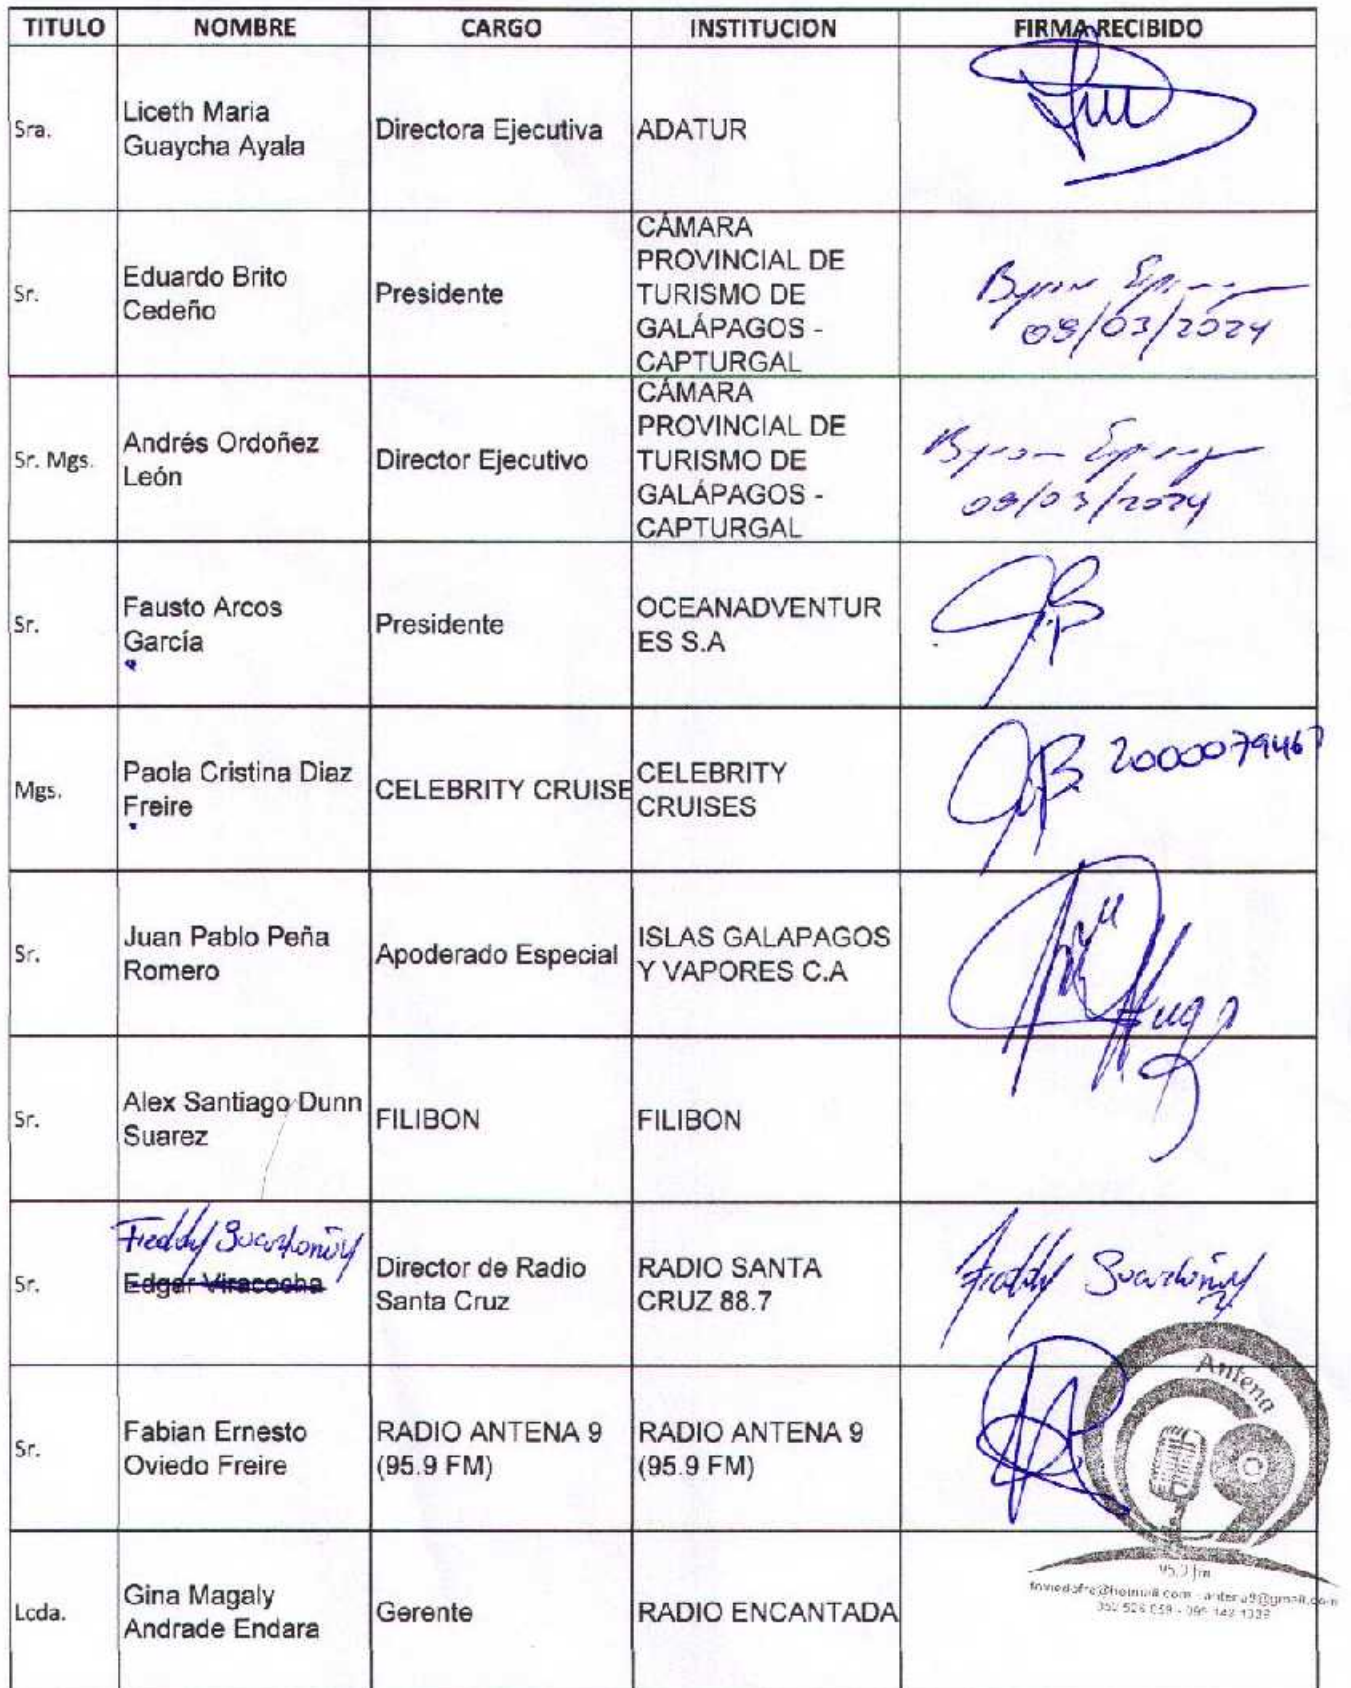 TITULO NOMBRE CARGO INSTITUCION FIRMA RECIBIDO
Sra.
Liceth Maria
Guaycha Ayala
Directora Ejecutiva
ADATUR
Sr.
Eduardo Brito
Cedeño
Presidente
CÁMARA
PROVINCIAL DE
TURISMO DE
GALÁPAGOS -
CAPTURGAL
Byron
08/03/2024
Sr. Mgs.
Andrés Ordoñez
León
Director Ejecutivo
CÁMARA
PROVINCIAL DE
TURISMO DE
GALÁPAGOS -
CAPTURGAL
Byron
08/03/2024
Sr.
Fausto Arcos
García
Presidente
OCEANADVENTUR
ES S.A
Mgs.
Paola Cristina Diaz
Freire
CELEBRITY CRUISE
CELEBRITY
CRUISES
Sr.
Juan Pablo Peña
Romero
Apoderado Especial
ISLAS GALAPAGOS
Y VAPORES C.A
Hugo
Sr.
Alex Santiago Dunn
Suarez
FILIBON
FILIBON
Sr.
Freddy
Edgar Viracocha
Director de Radio
Santa Cruz
RADIO SANTA
CRUZ 88.7
Freddy
Sr.
Fabian Ernesto
Oviedo Freire
RADIO ANTENA 9
(95.9 FM)
RADIO ANTENA 9
(95.9 FM)
Antena
9
Lcda.
Gina Magaly
Andrade Endara
Gerente
RADIO ENCANTADA